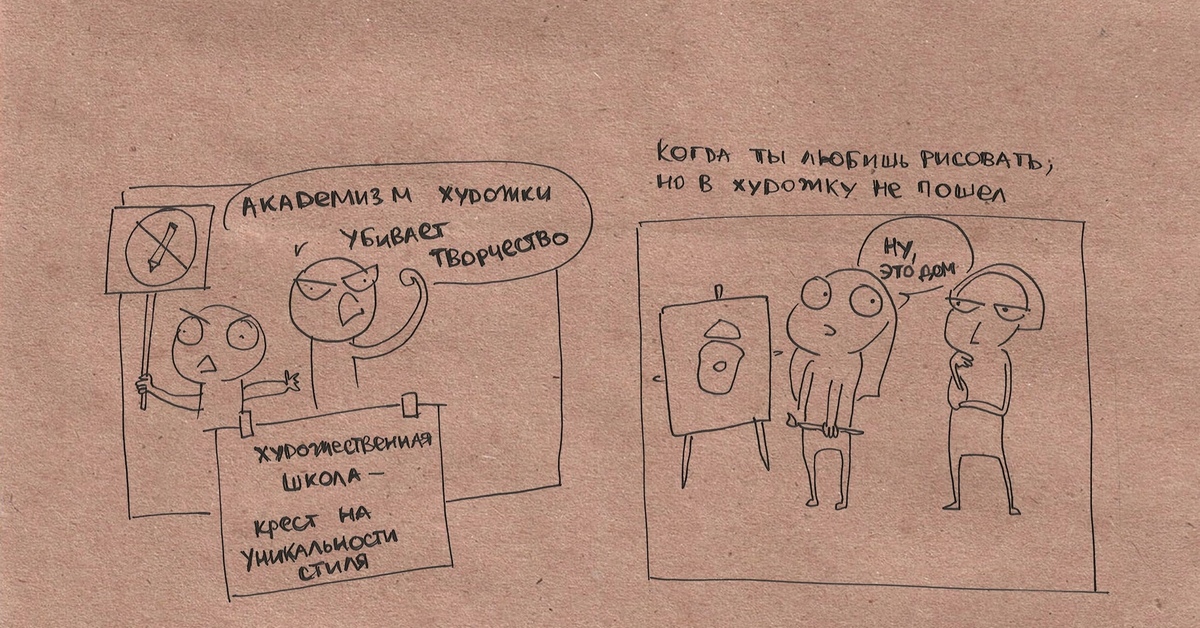 АКАДЕМИЗМ ХУДОЖКИ
УБИВАЕТ
ТВОРЧЕСТВО
ХУДОЖЕСТВЕННАЯ
ШКОЛА —
КРЕСТ НА
УНИКАЛЬНОСТИ
СТИЛЯ
КОГДА ТЫ ЛЮБИШЬ РИСОВАТЬ,
НО В ХУДОЖКУ НЕ ПОШЕЛ
НУ,
ЭТО ДОМ